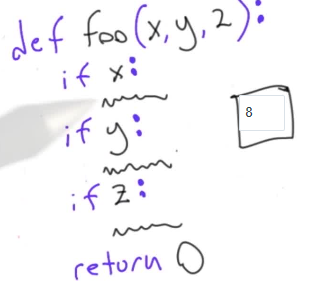 def foo(x,y,z):
if x:
if y:
8
if z:
return 0